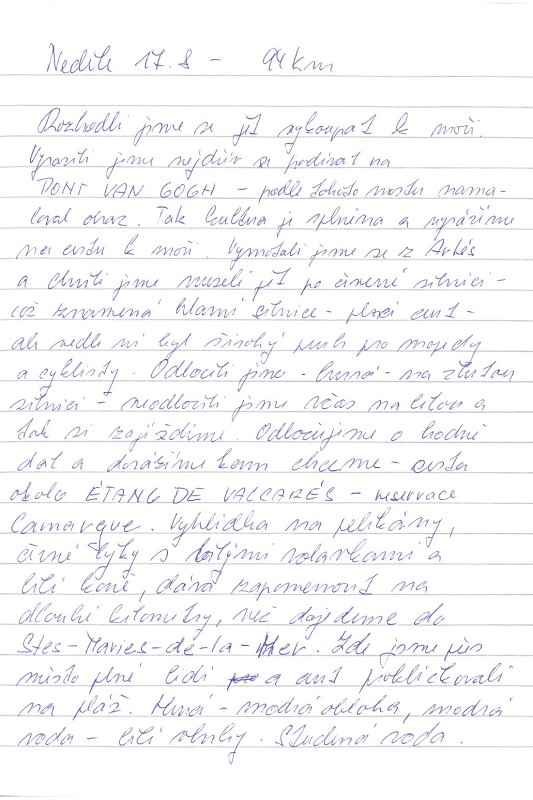 Neděle 17.8 - 94 km
Rozhodli jsme se jet vykoupat k moři.
Vyrazili jsme nejdřív se podívat na
PONT VAN GOGH - podle tohoto mostu nama-
loval obraz. Tak kultura je splněna a vyrážíme
na cestu k moři. Vymotali jsme se z Arlés
a chvíli jsme museli jet po červené silnici -
což znamená hlavní silnice - plno aut -
ale vedle ní byl široký pruh pro mopedy
a cyklisty. Odbočili jsme - hurá - na žlutou
silnici - neodbočili jsme včas na bílou a
tak si zajíždíme. Odbočujeme o hodně
dál a dorážíme kam chceme - cesta
okolo ÉTANG DE VALCARÉS - reservace
Camarque. Vyhlídka na pelikány,
černé býky s bílými volavkami a
bílé koně, dává zapomenout na
dlouhé kilometry, než dojedeme do
Stes-Maries-de-la-Mer. Zde jsme přes
město plné lidí a aut prokličkovali
na pláž. Hurá - modrá obloha, modrá
voda - bílé vlnky. Studená voda.